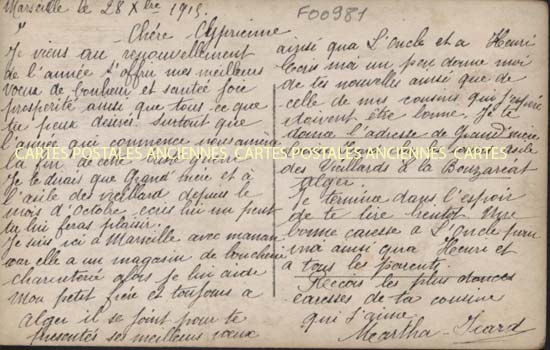 Marseille le 28 Xbre 1915.
F00981
Chère Cyprienne
Je viens au renouvellement
de l'année t'offrir mes meilleurs
voeux de bonheur et santée joie
prospérité ainsi que tous ce que
tu peux désirer. surtout que
l'année qui commence nous amène
CARTES POSTALES ANCIENNES CARTES POSTALES ANCIENNES CARTES
Je te dirais que Grand'mère et à
l'asile des vieillard depuis le
mois d'Octobre. ecris lui un peu
tu lui feras plaisir.
Je suis ici à Marseille avec maman
car elle a un magasin de boucherie
charcuterie alors je lui aide
Mon petit frère et toujours a
alger il se joint pour te
présentés ses meilleurs voeux
ainsi qua L'Oncle et a Henri
Ecris moi un peu donne moi
de tes nouvelles ainsi que de
celle de mes cousins qui j'espère
doivent être bonne. Je te
donne l'adresse de Grand'mère
asile
des Vieillards à la Bouzaréat
alger.
Je termine dans l'espoir
de te lire bientot. Une
bonne caresse a L'Oncle pour
moi ainsi qua Henri et
a tous les parents.
Reçois les plus douces
caresses de ta cousine
qui t'aime.
Martha Icard